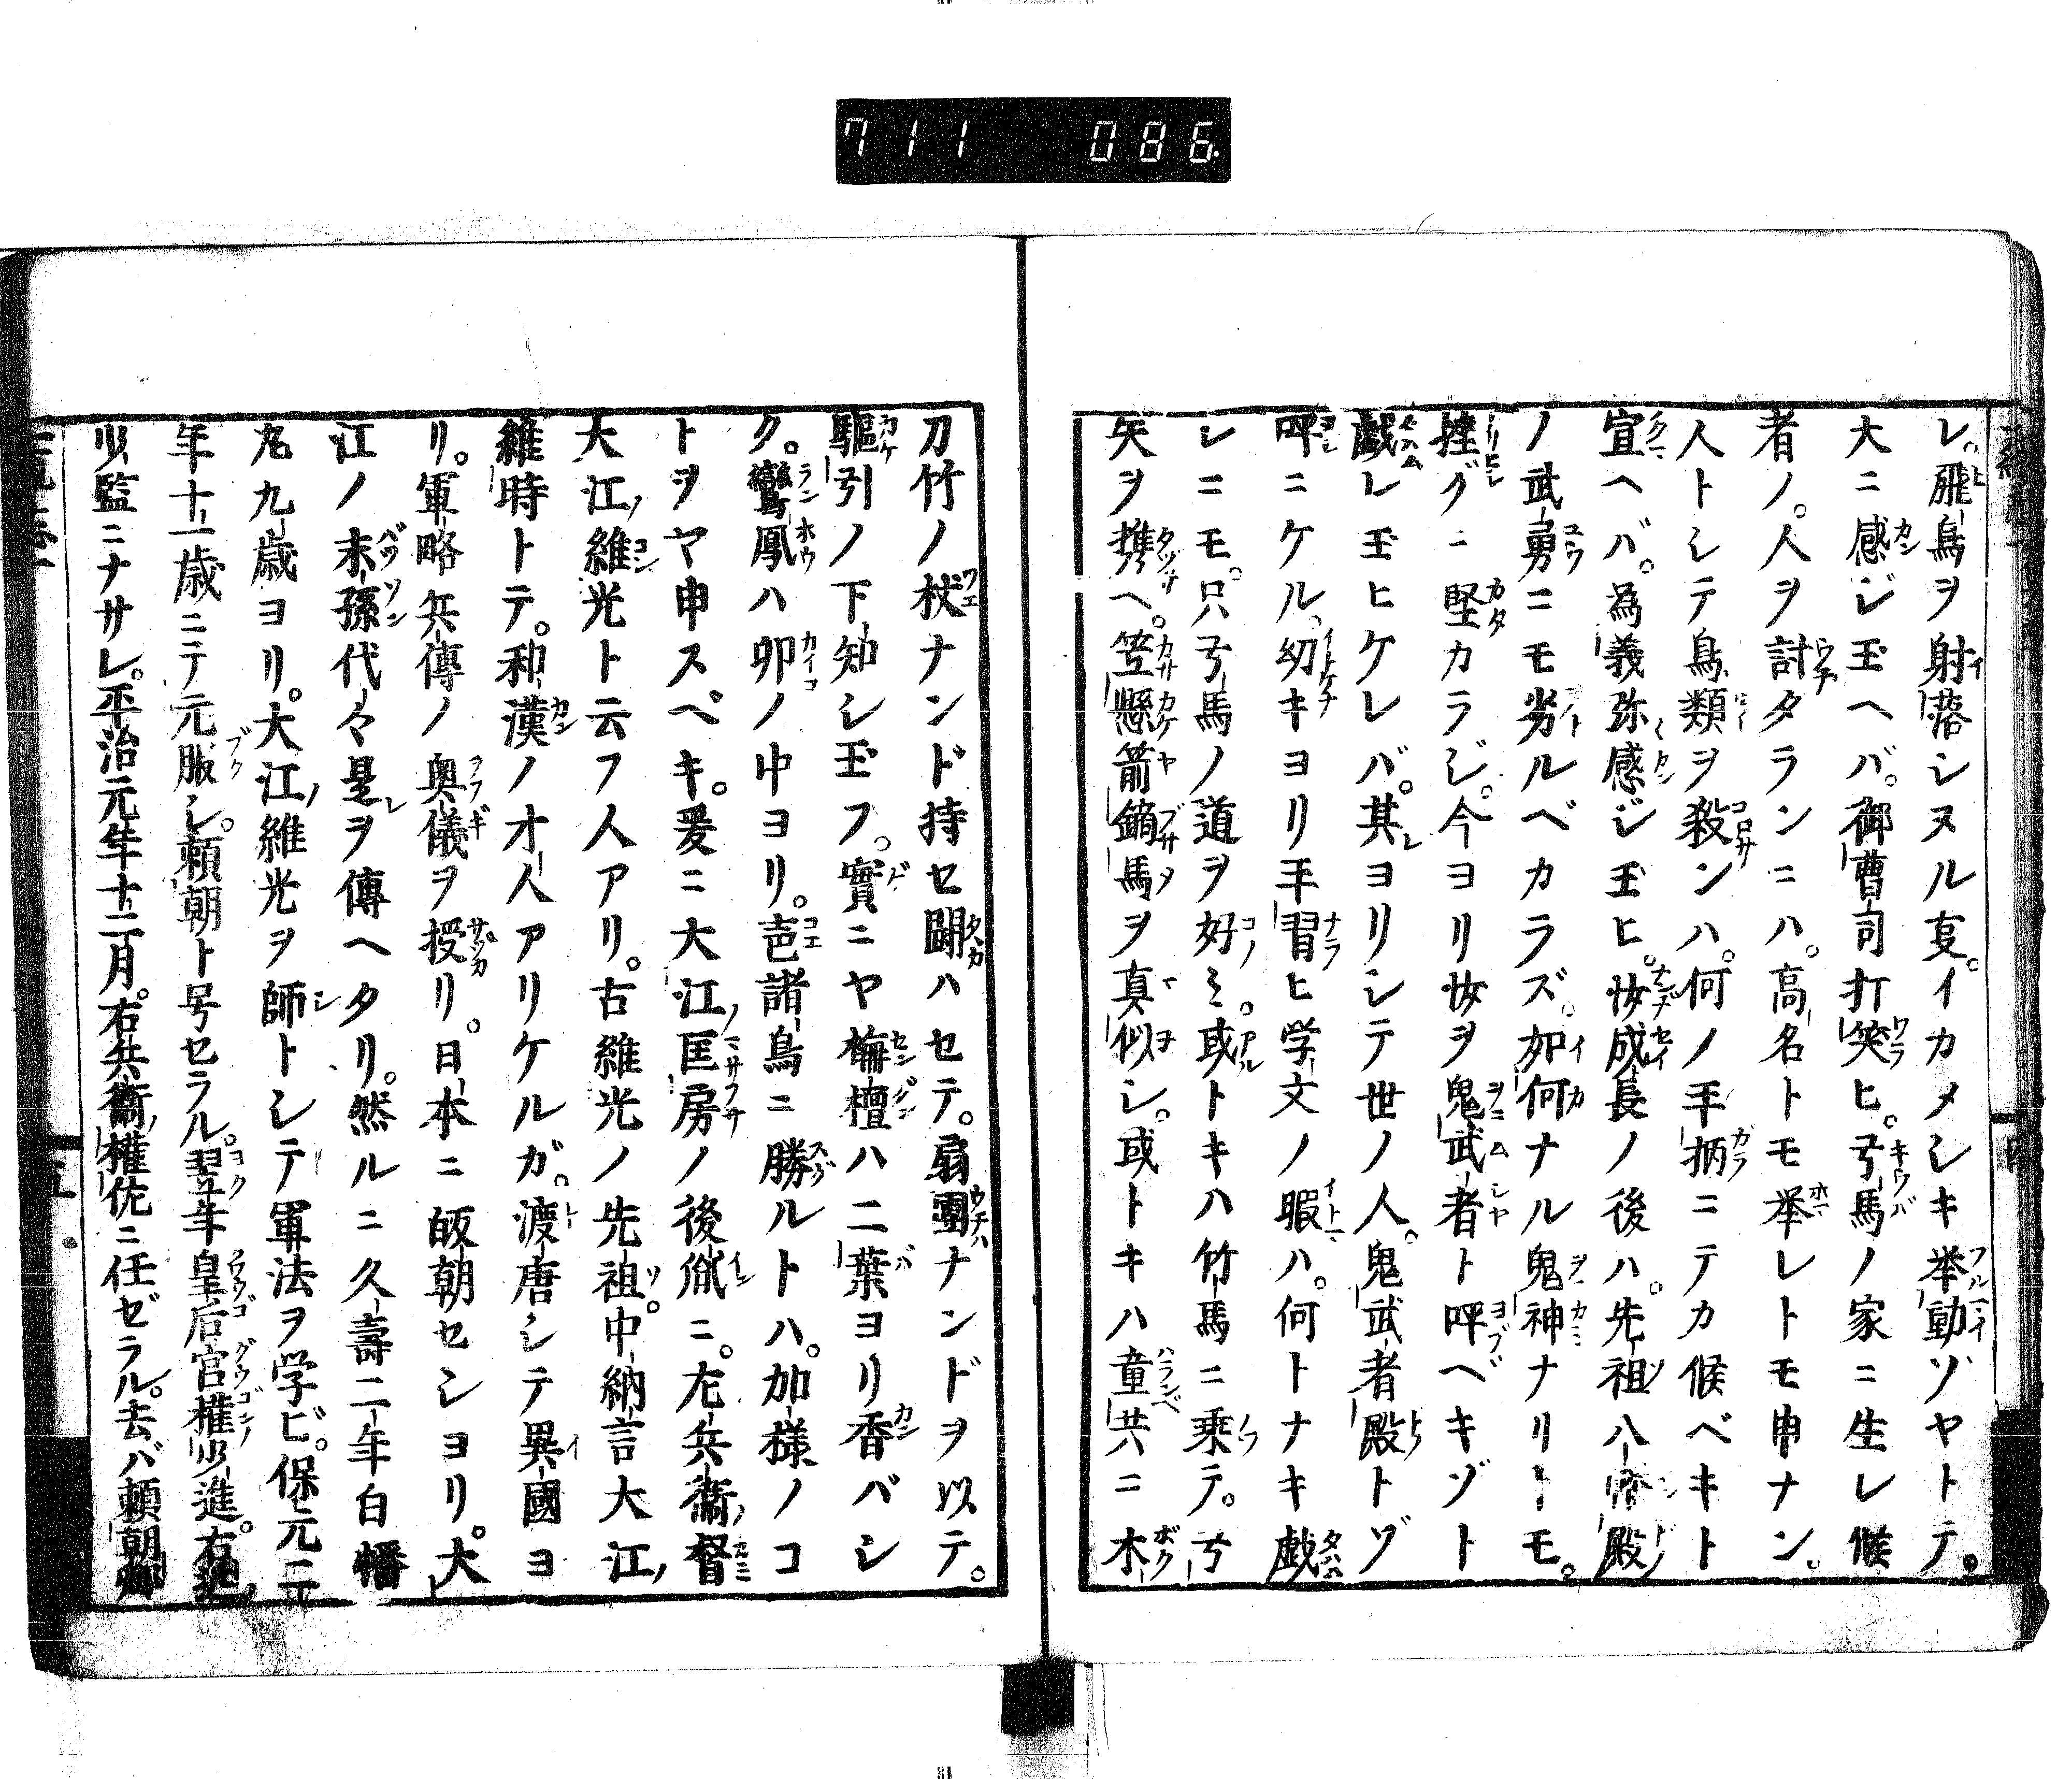 711 086
レ。飛鳥ヲ射落シヌル叓。イカメシキ挙動ゾヤトテ。
大ニ感ジ玉ヘバ。御曹司打笑ヒ。弓馬ノ家ニ生レ候
者ノ。人ヲ討タランニハ。高名トモ挙レトモ申ナン。
人トシテ鳥類ヲ殺ンハ。何ノ手柄ニテカ候ベキト
宣ヘバ。為義弥感ジ玉ヒ。汝成長ノ後ハ。先祖八幡殿
ノ武勇ニモ劣ルベカラズ。如何ナル鬼神ナリトモ。
挫グニ堅カラジ。今ヨリ汝ヲ鬼武者ト呼ベキゾト
戯レ玉ヒケレバ。其ヨリシテ世ノ人。鬼武者殿トゾ
呼ニケル。幼キヨリ手習ヒ学文ノ暇ハ。何トナキ戯
レニモ。只弓馬ノ道ヲ好ミ。或トキハ竹馬ニ乗テ。弓
矢ヲ携ヘ。笠懸箭鏑馬ヲ真似シ。或トキハ童共ニ木
刀竹ノ杖ナンド持セ闘ハセテ。扇團ナンドヲ以テ。
驅引ノ下知シ玉フ。實ニヤ栴檀ハ二葉ヨリ香バシ
ク。鸞鳳ハ卵ノ中ヨリ。声諸鳥ニ勝ルトハ。加様ノコ
トヲヤ申スベキ。爰ニ大江ノ匡房ノ後胤ニ。左兵衛督
大江ノ維光ト云フ人アリ。古維光ノ先祖。中納言大江ノ
維時トテ。和漢ノオ人アリケルガ。渡唐シテ異國ヨ
リ。軍略兵傳ノ奥儀ヲ授リ。日本ニ皈朝センヨリ。大
江ノ末孫代々是ヲ傳ヘタリ。然ルニ久壽二年白幡
丸九歳ヨリ。大江ノ維光ヲ師トシテ軍法ヲ学ビ。保元二
年十一歳ニテ元服シ。頼朝ト号セラル。翌年皇后宮権少進。右近ノ
少監ニナサレ。平治元年十二月。右兵衛ノ権佐ニ任ゼラル。去バ頼朝卿